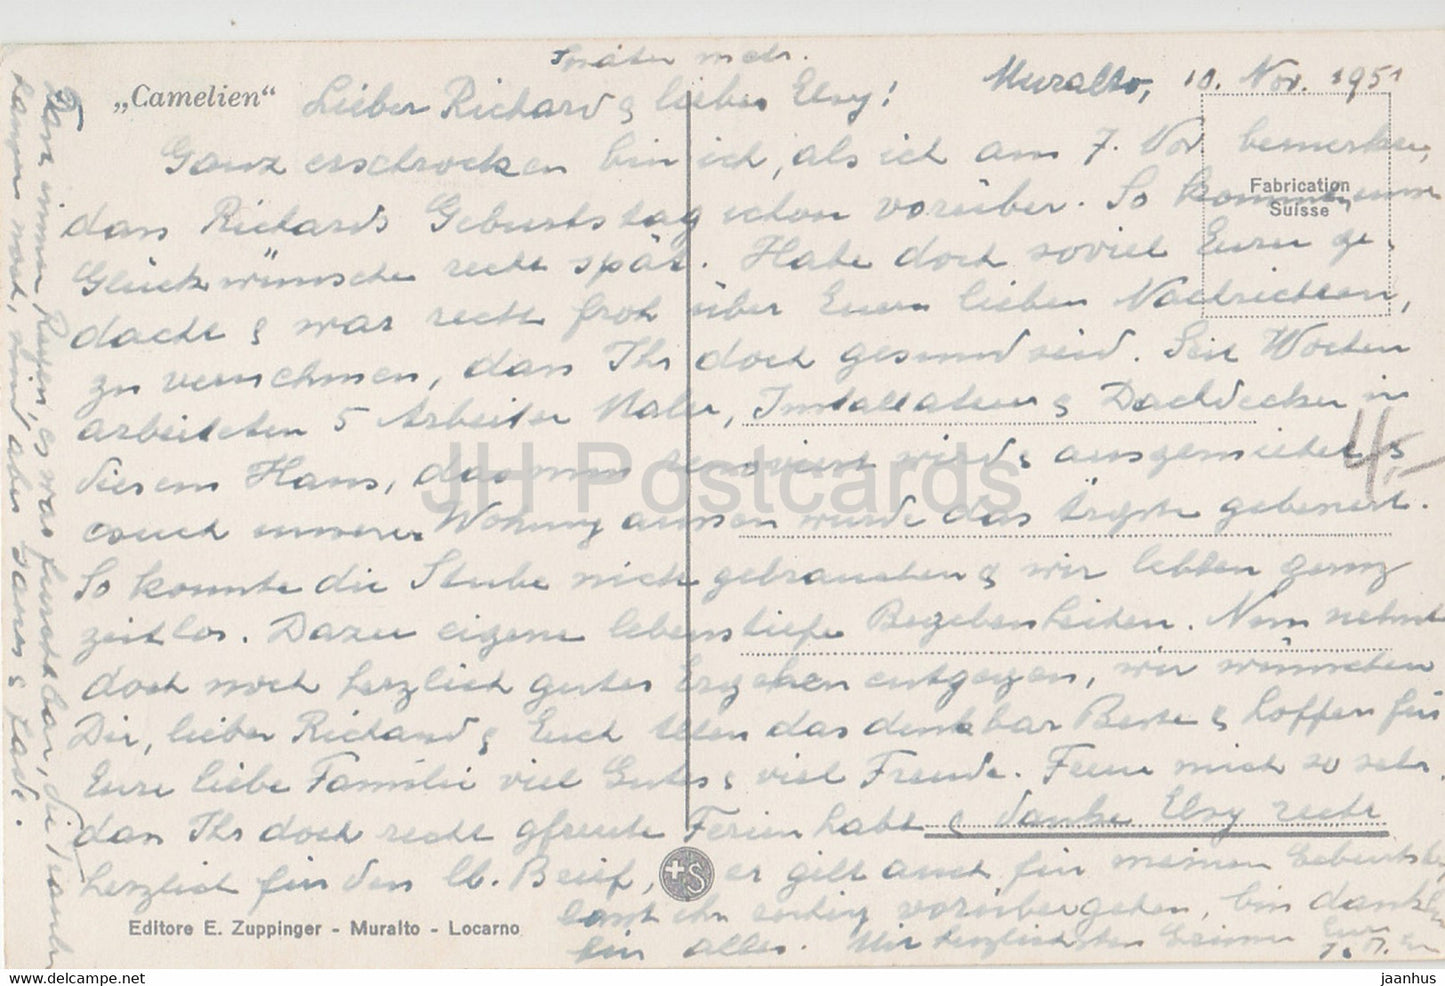 Später mehr.
„Camelien“
Muralto, 10. Nov. 1951
Lieber Richard & liebes Elsy!
Ganz erschrocken bin ich, als ich am 7. Nov bemerkte,
dass Richards Geburtstag schon vorüber. So kommen unsere
Glückwünsche recht spät. Habe doch soviel Eurer ge-
dacht & war recht froh über Euren lieben Nachrichten,
zu vernehmen, dass Ihr doch gesund seid. Seit Wochen
arbeiteten 5 Arbeiter Maler, Installateure & Dachdecker in
diesem Haus, das nun renoviert wird & ausgemietet &
auch unserer Wohnung aussen wurde das ärgste gebessert.
So konnte die Stube nicht gebrauchen & wir lebten ganz
zeitlos. Dazu eigene lebenstiefe Begebenheiten. Nun nehmt
doch noch herzlich gutes Ergehen entgegen, wir wünschen
Dir, lieber Richard & Euch Allen das denkbar Beste & hoffen für
Eure liebe Familie viel Gutes & viel Freude. Freue mich so sehr,
dass Ihr doch recht gfreute Ferien habt & danke Elsy recht
herzlich für den lb. Brief, er gilt auch für meinen Geburtstag
ihn vorübergehen, bin dankbar
für alles. Mit herzlichsten Grüssen Eure
Dann immer Regen, es war furchtbar, die
langen noch, sind aber &
Fabrication
Suisse
4,-
+S
Editore E. Zuppinger - Muralto - Locarno
JH Postcards
www.delcampe.net
jaanhus